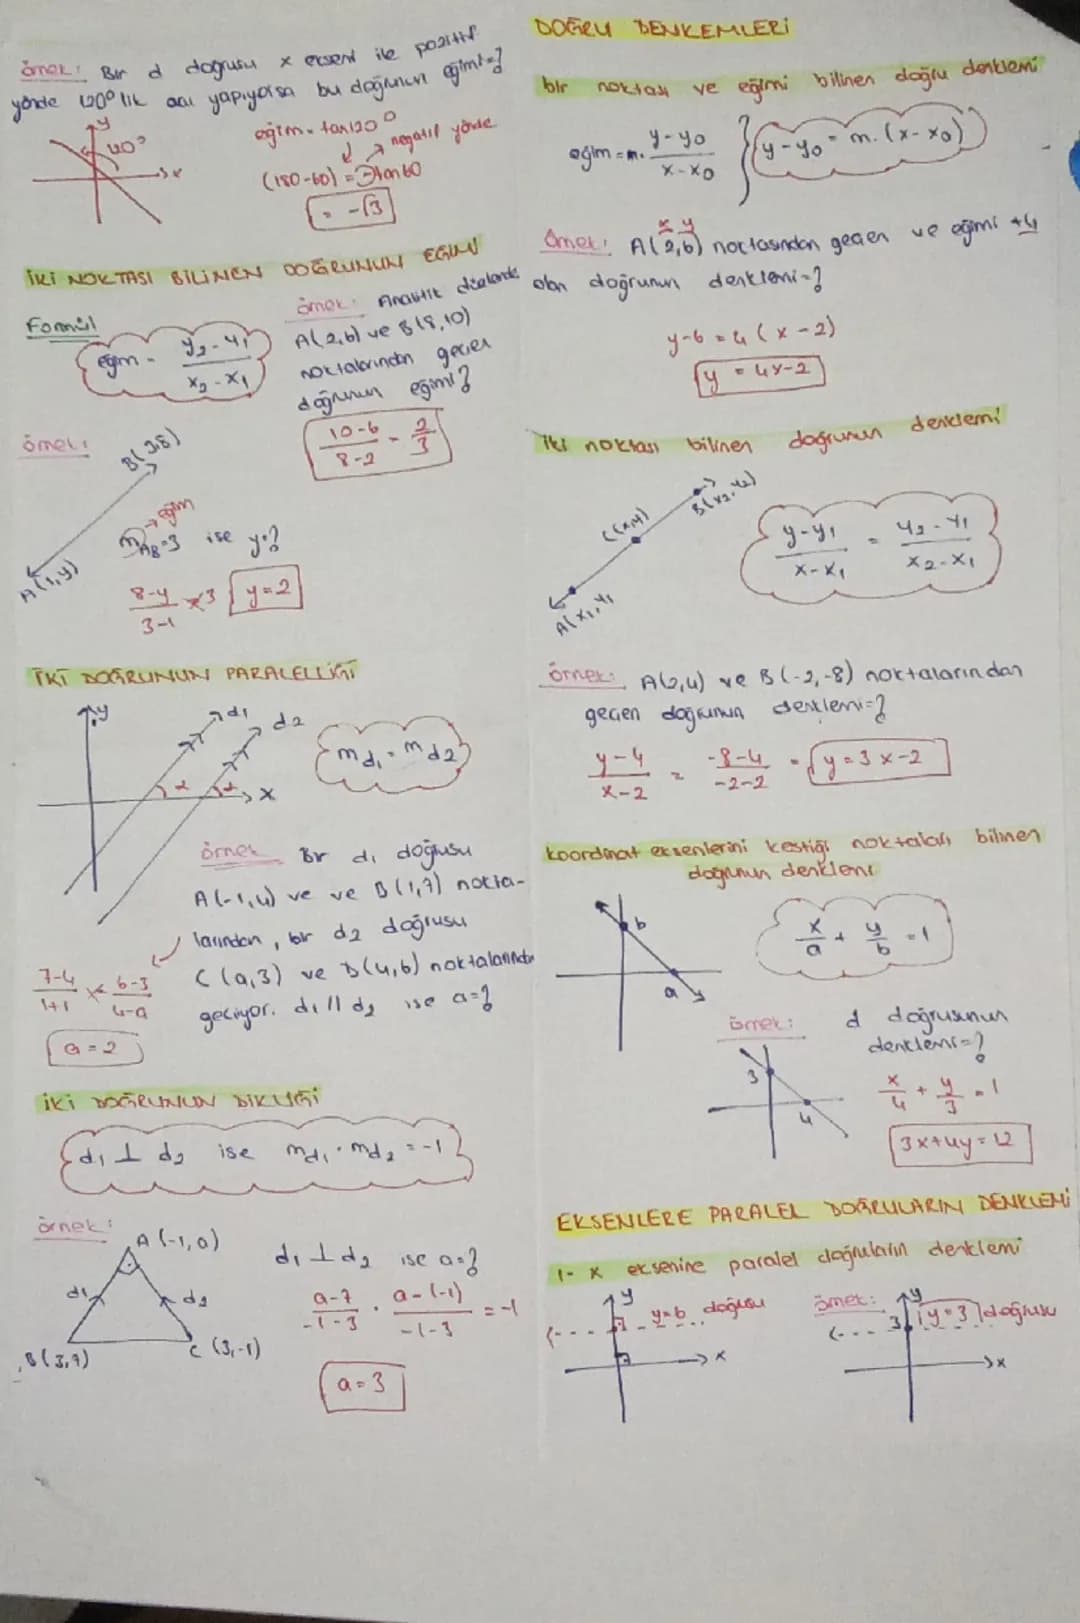 örnek: Bir d doğrusu x ekseni ile pozitif
yönde 120° lik açı yapıyorsa bu doğrunun eğimi=?
y
120°
x
eğim = tan120°
negatif yönde
(180-60) = -tan60
= -√3
İKİ NOKTASI BİLİNEN DOĞRUNUN EĞİMİ
Formül
eğim = y₂-y₁ / x₂-x₁
örnek: Analitik düzlemde
A(2,6) ve B(8,10)
noktalarından geçen
doğrunun eğimi?
10-6 / 8-2 = 2/3
örnek:
B(3,8)
A(1,y)
eğim
m_AB=3 ise y=?
8-y / 3-1 = 3
y=2
İKİ DOĞRUNUN PARALELLİĞİ
y
d₁
d₂
α α x
m_d₁ = m_d₂
örnek Bir d₁ doğrusu
A(-1,4) ve ve B(1,7) nokta-
larından, bir d₂ doğrusu
C(a,3) ve D(4,6) noktalarından
geçiyor. d₁ // d₂ ise a=?
7-4 / 1+1 = 6-3 / 4-a
a=2
İKİ DOĞRUNUN DİKLİĞİ
d₁ ⊥ d₂ ise m_d₁ · m_d₂ = -1
örnek:
A(-1,a)
d₁
d₂
B(3,7)
C(3,-1)
d₁ ⊥ d₂ ise a=?
a-7 / -1-3 · a-(-1) / -1-3 = -1
a=3
DOĞRU DENKEMLERİ
bir noktası ve eğimi bilinen doğru denklemi
eğim = m = y-y₀ / x-x₀ } y-y₀ = m.(x-x₀)
x y
örnek: A(2,6) noktasından geçen ve eğimi +4
olan doğrunun denklemi=?
y-6 = 4(x-2)
y = 4x-2
iki noktası bilinen doğrunun denklemi
B(x₂,y₂)
C(x,y)
A(x₁,y₁
y-y₁ / x-x₁ = y₂-y₁ / x₂-x₁
örnek: A(2,4) ve B(-2,-8) noktalarından
geçen doğrunun denklemi=?
y-4 / x-2 = -8-4 / -2-2 = y=3x-2
koordinat eksenlerini kestiği noktaları bilinen
doğrunun denklemi
b
a
x/a + y/b = 1
örnek: d doğrusunun
denklemi=?
3
4
x/4 + y/3 = 1
3x+4y=12
EKSENLERE PARALEL DOĞRULARIN DENKLEMİ
1- x eksenine paralel doğruların denklemi
y
y=b doğrusu
x
örnek:
y
3 y=3 doğrusu
x